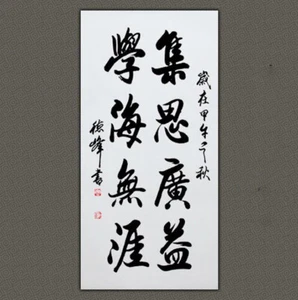 歲在甲午之秋
集思廣益
學海無涯
德峰書